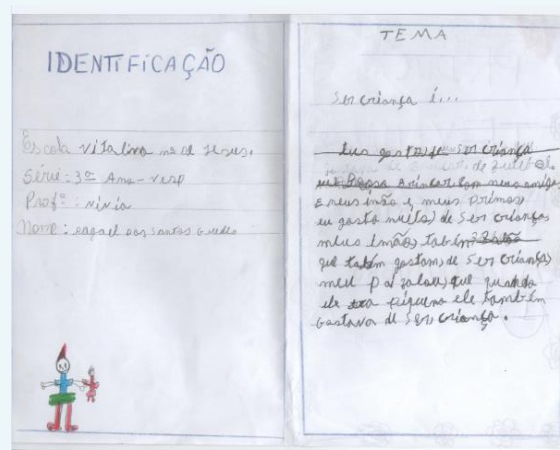 IDENTIFICAÇÃO
Escola vitalina de Jesus.
Série: 3º Ano - Vesp
Profª: nivia
Nome: rafael dos santos
TEMA
Ser criança é...
eu gosto de ser criança
de futebol.
brincar com meus amigo
e meus imão e meus primos
eu gosto muito de ser criança
meus imão, tabém
que tabém gostam, de ser criança,
meu pai falou, que quando
ele era piqueno ele também
Gostava de ser criança.